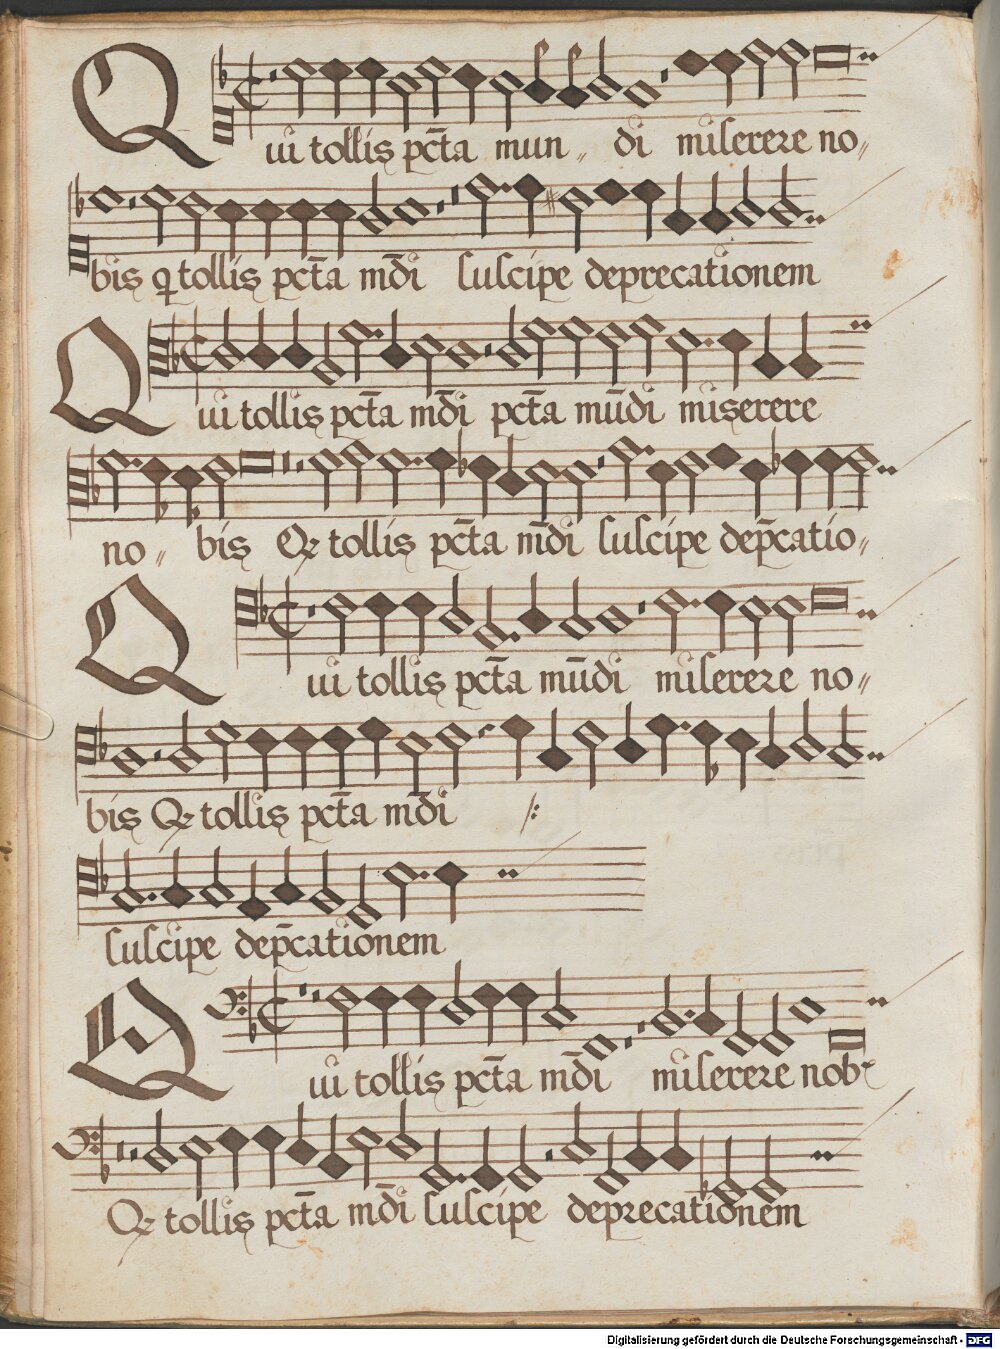 Qui tollis pct̄a mun〃 di miserere no〃
bis q tollis pct̄a md̄i suscipe deprecationem
Qui tollis pct̄a md̄i pct̄a mūdi miserere
no〃 bis Qz tollis pct̄a md̄i suscipe dep̄catio〃
Qui tollis pct̄a mūdi miserere no〃
bis Qz tollis pct̄a md̄i
suscipe dep̄cationem
Qui tollis pct̄a md̄i miserere nob
Qz tollis pct̄a md̄i suscipe deprecationem
Digitalisierung gefördert durch die Deutsche Forschungsgemeinschaft - DFG